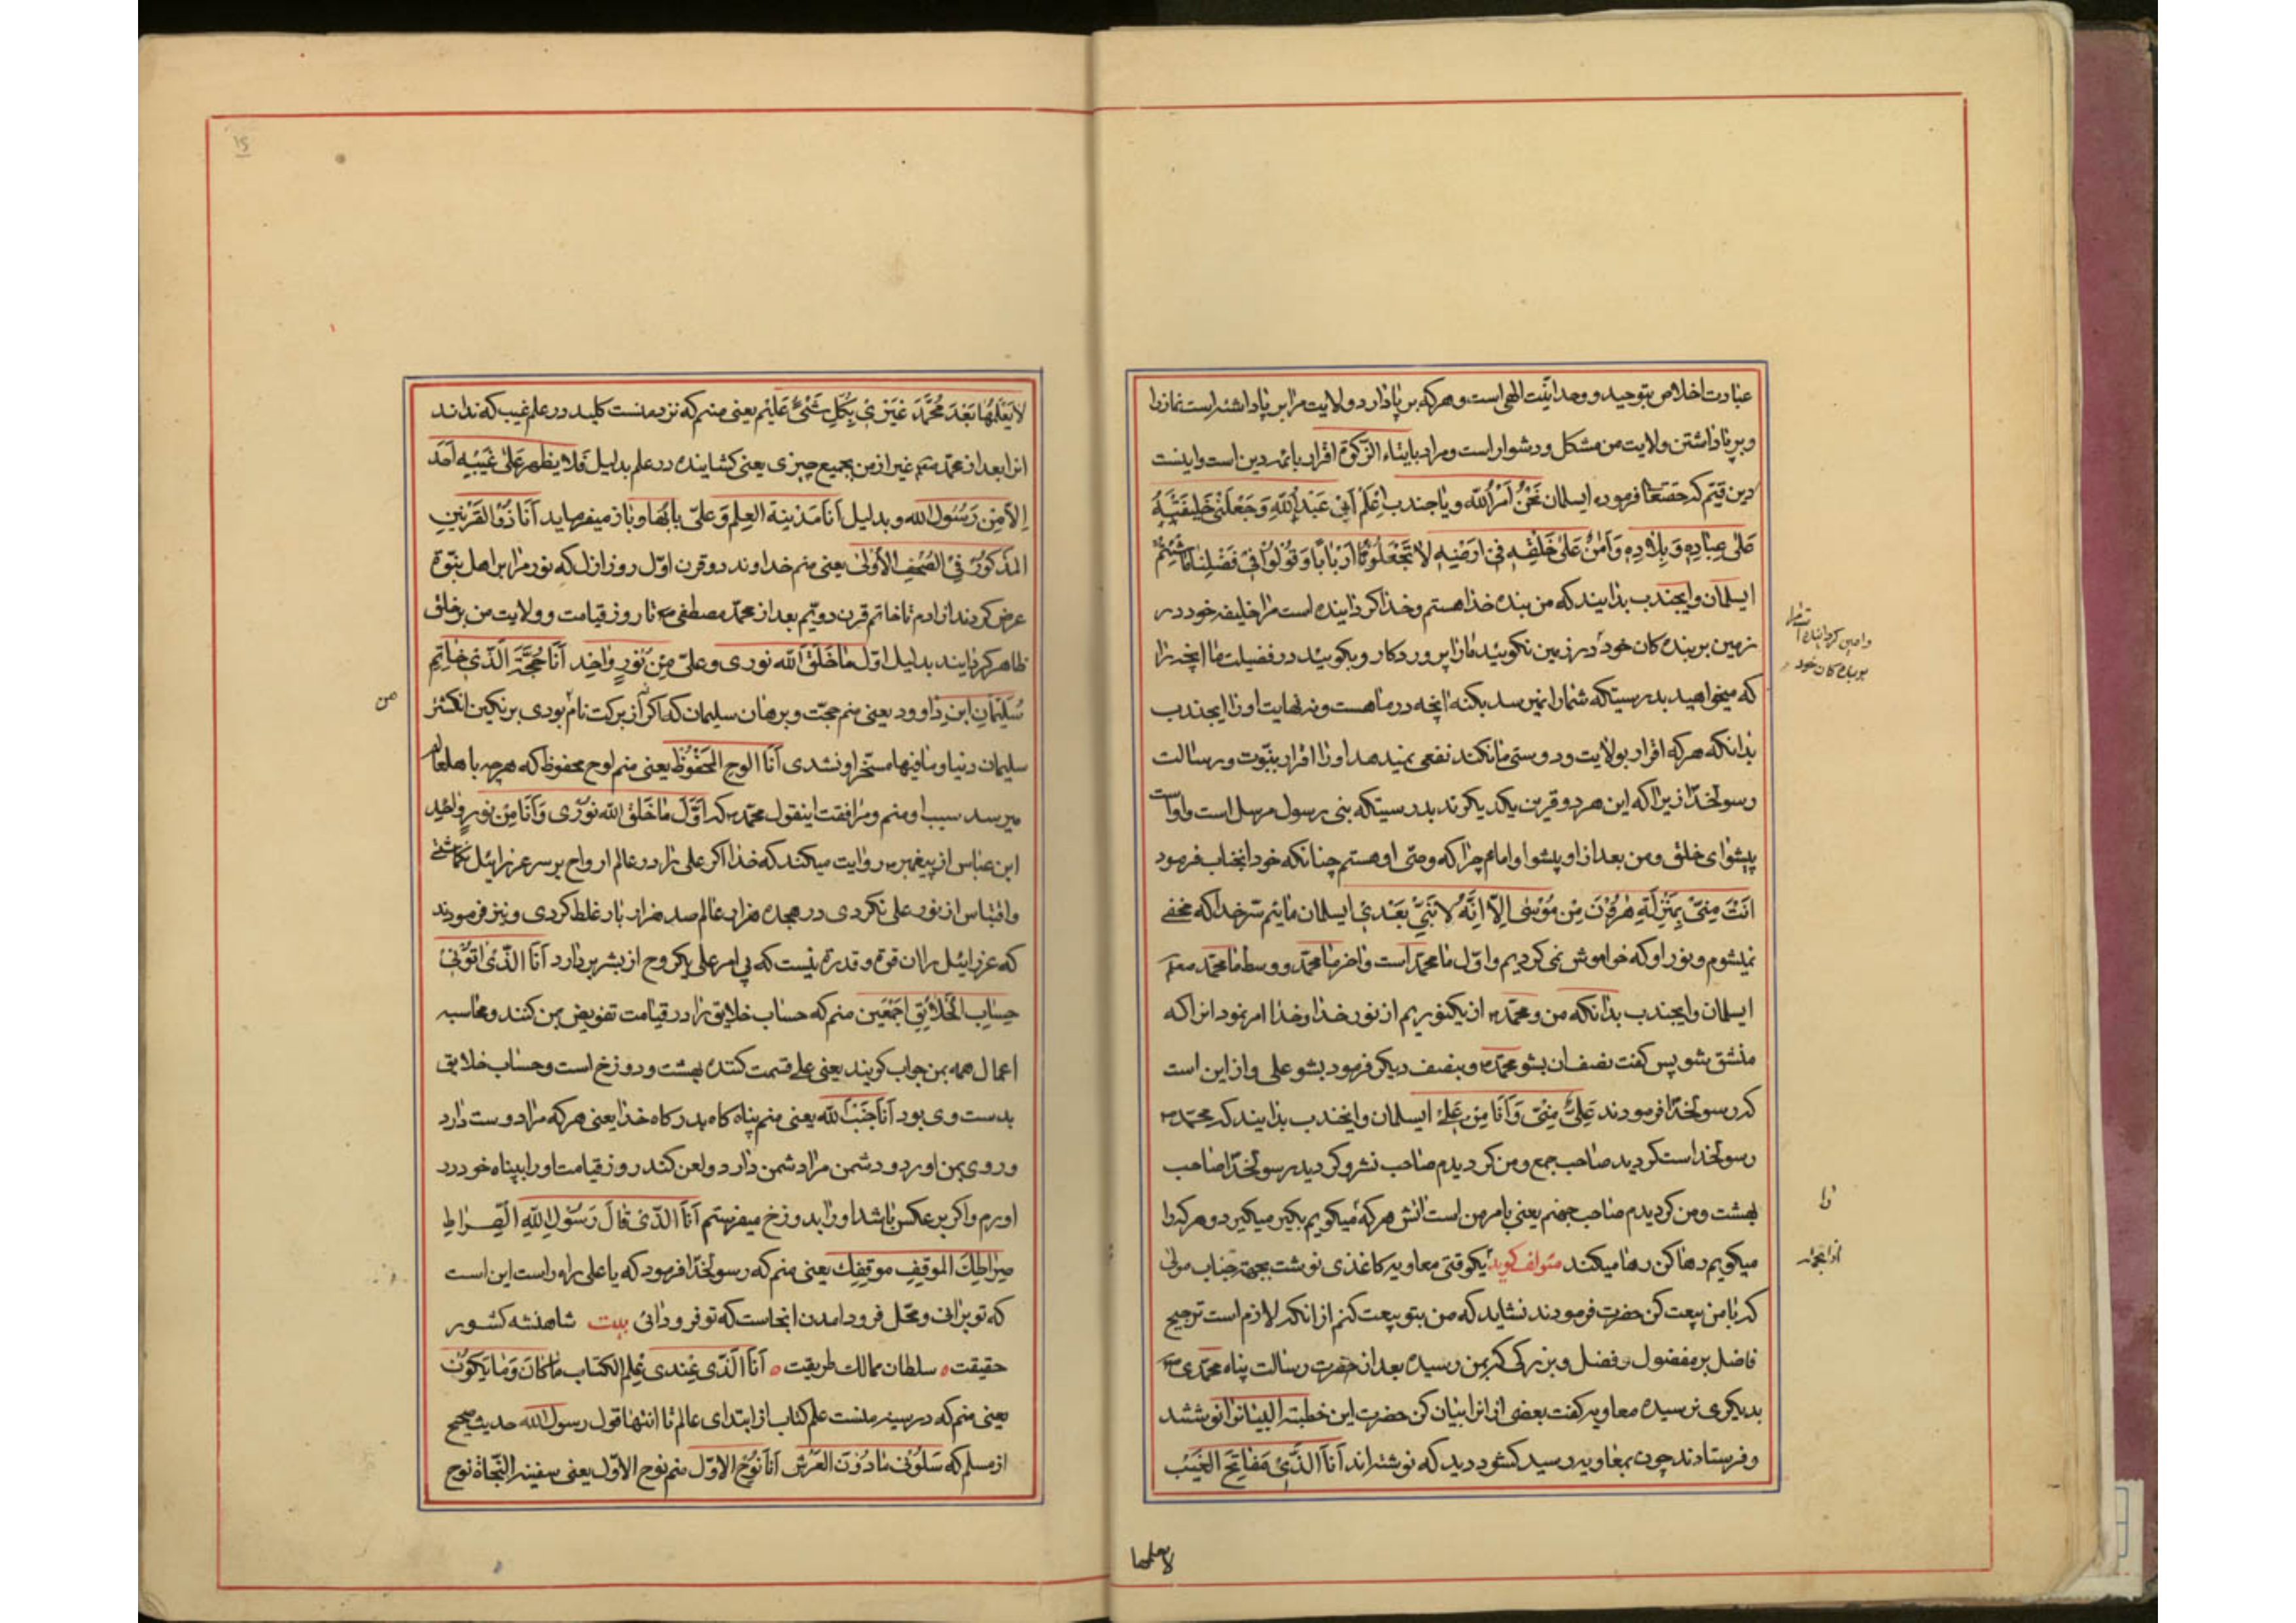 عبادت اخلاص بتوحید و وحدانیّت الهی است و هرکه بر پا دارد ولایت مرا بر پا داشته است نماز را
و بر پا داشتن ولایت من مشکل و دشوار است و مراد بایتاء الزّکوة اقرار بائمه دین است و اینست
دین قیّم که حقتعالی فرموده ایسلمان نَحْنُ اَمْرُ اللّه و یا جندب اِعْلَمْ اَنّی عَبْدُ اللّهِ وَ جَعَلَنی خَلیفَتَهُ
عَلی عِبادِهِ وَ بِلادِهِ وَ اَمینُ عَلی خَلْقِهِ فی اَرْضِهِ لا تَجْعَلُونا اَرْباباً وَ قُولُوا فی فَضْلِنا ما شِئْتُمْ
ایسلمان و ایجندب بدانید که من بنده خدا هستم و خدا گردانیده است مرا خلیفه خود در
زمین بر بنده کان خود در زمین نگوئید ما را پروردکار و بگوئید در فضیلت ما انچه را
که میخواهید بدرستیکه شما را نمیرسد بکنه انچه در ما هست و نه نهایت او را ایجندب
بدانکه هرکه اقرار بولایت و دوستی ما نکند نفعی نمیدهد او را اقرار بنبّوت و رسالت
رسولخدا زیرا که این هر دو قرین یکدیکرند بدرستیکه بنی رسول مرسل است و اواست
پیشوای خلق و من بعد از او پیشوا و امامم چرا که وصّی او هستم چنانکه خود انجناب فرمود
اَنْتَ مِنّی بِمَنْزِلَةِ هرُونَ مِنْ مُوسی اِلّا اِنَّهُ لا نَبِیَّ بَعْدی ایسلمان مائیم سّر خدا که مخفے
نمیشوم و نور او که خواموش نمی کردیم و اوّل ما محمّد است و اخر ما محمّد و وسط ما محمّد صعم
ایسلمان و ایجندب بدانکه من و محمّد ص از یکنوریم از نور خدا و خدا امر نمود انرا که
منشق بشو پس کفت نصف ان بشو محمّد ص و بنصف دیکر فرمود بشو علی و از این است
که رسولخدا فرمودند عَلِیٌّ مِنّی وَ اَنَا مِنْ عَلیٍ ایسلمان و ایجندب بدانید که محمّد ص
رسولخداست کردید صاحب جمع و من کردیدم صاحب نشر و کردید رسولخدا صاحب
بهشت و من کردیدم صاحب جهنم یعنی بامر من است اتش هرکه میکویم بکیر میکیرد و هرکه را
میکویم رها کن رها میکند متولف کوید یکوقتی معاویه کاغذی نوشت بجهة جناب مولی
که با من بیعت کن حضرت فرمودند نشاید که من بتو بیعت کنم از انکه لازم است ترجیح
فاضل بر مفضول و فضل و بزرکی که بمن رسیده بعد از حضرت رسالت پناه محمّدی ص
بدیکری نرسیده معاویه کفت بعضی از انرا بیان کن حضرت این خطبة البیانرا نوشتند
و فرستادند چون بمعاویه رسید کشود دید که نوشته‌اند اَنَا الَّذی مَفاتِحَ الْغَیْب
را
از انجمله
لا یعلمها
لا یَعْلَمُها بَعْدَ مُحَمَّدَ غَیْری بِکُلِ شَیْیء عَلیم یعنی منم که نزد منست کلید در علم غیب که نداند
انرا بعد از محمّد صعم غیر از من بجمیع چیزی یعنی کشاینده در علم بدلیل فَلا یظهر عَلی غَیْبِهِ اَحَد
اِلاّ مِنْ رَسُول الله و بدلیل اَنا مَدینَة العِلم وَ عَلیّ بابُها و باز میفرماید اَنَا ذُو القَرْنَینِ
المَذکوُر فی الصُّحُفِ الاُولی یعنی منم خداوند دو قرن اوّل روز ازل که نور مرا بر اهل نبّوة
عرض کردند از ادم تا خاتم قرن دویّم بعد از محمّد مصطفی ص تا روز قیامت و ولایت من بر خلق
ظاهر کردانید بدلیل اوّل ما خَلَقَ اللّه نوری و علیّ مِنْ نُورٍ واحِد اَنَا حُجَّةَ الَّذی خاتِم
سُلَیْمان ابنِ داوود یعنی منم حجّت و برهان سلیمان که اکر از برکت نام بودی بر نکین انکشتر
من
سلیمان دنیا و ما فیها مسّخر او نشدی اَنَا الوح المَحْفُوظ یعنی منم لوح محفوظ که هرچه با هلعالم
میرسد سبب او منم و مرافقت اینقول محمّد ص که اَوَّل ما خَلَقَ اللّه نوری وَ اَنَا مِن نورٍ واحِد
ابن عباس از پیغمبر ص روایت میکند که خدا اکر علی را در عالم ارواح بر سر عزرائیل نکماشتے
و اقتباس از نور علی نکردی در هجده هزار عالم صد هزار بار غلط کردی و نیز فرمودند
که عزرائیل را ان قوة و قدرة نیست که بی امر علی یکروح از بشر بردارد اَنَا الَّذی اتوُنی
حِسابِ الخَلائِقِ اَجْمَعین منم که حساب خلایق را در قیامت تفویض من کنند و محاسبه
اعمال همه بمن جواب کویند یعنی علے قسمت کننده بهشت و دوزخ است و حساب خلایق
بدست وی بود اَنا جَنْبُ اللّه یعنی منم پناه کاه بدرکاه خدا یعنی هرکه مرا دوست دارد
و روی بمن اورد و دشمن مرا دشمن دارد و لعن کند روز قیامت او را بپناه خود در
اورم و اکر بر عکس باشد او را بدوزخ میفرستم اَنَا الَّذی قالَ رَسوُلُ اللّهِ الصِّراط
صِراطَكَ الموقِفِ موقِفِك یعنی منم که رسولخدا فرمود که یا علی راه راست این است
که تو برانی و محّل فرود امدن انجاست که تو فرود ائی بیت شاهنشه کشور
حقیقت ٥ سلطان ممالك طریقت ٥ اَنَا الَّذی عِنْدی عِلم الکتاب ما کانَ وَ ما یَکوُن
یعنی منم که در سینه منست علم کتاب از ابتدای عالم تا انتها قول رسول الله حدیث صحیح
از مسلم که سَلوُنی مادُونَ العَرْش اَنَا نوُح الاوّل منم نوح الاوّل یعنی سفینه النّجاة نوح